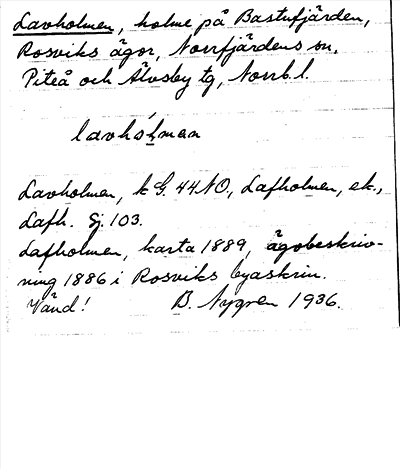 Lavholmen, holme på Bastufjärden,
Rosviks ägor, Norrfjärdens sn,
Piteå och Älvsby tg, Norrb. l.
lavhólmen
Lavholmen, k G. 44 NO., Lafholmen, ek.,
Lafh. Gj. 103.
Lafholmen, karta 1889, ägobeskriv-
ning 1886 i Rosviks byaskrin.
Vänd! B. Nygren 1936.